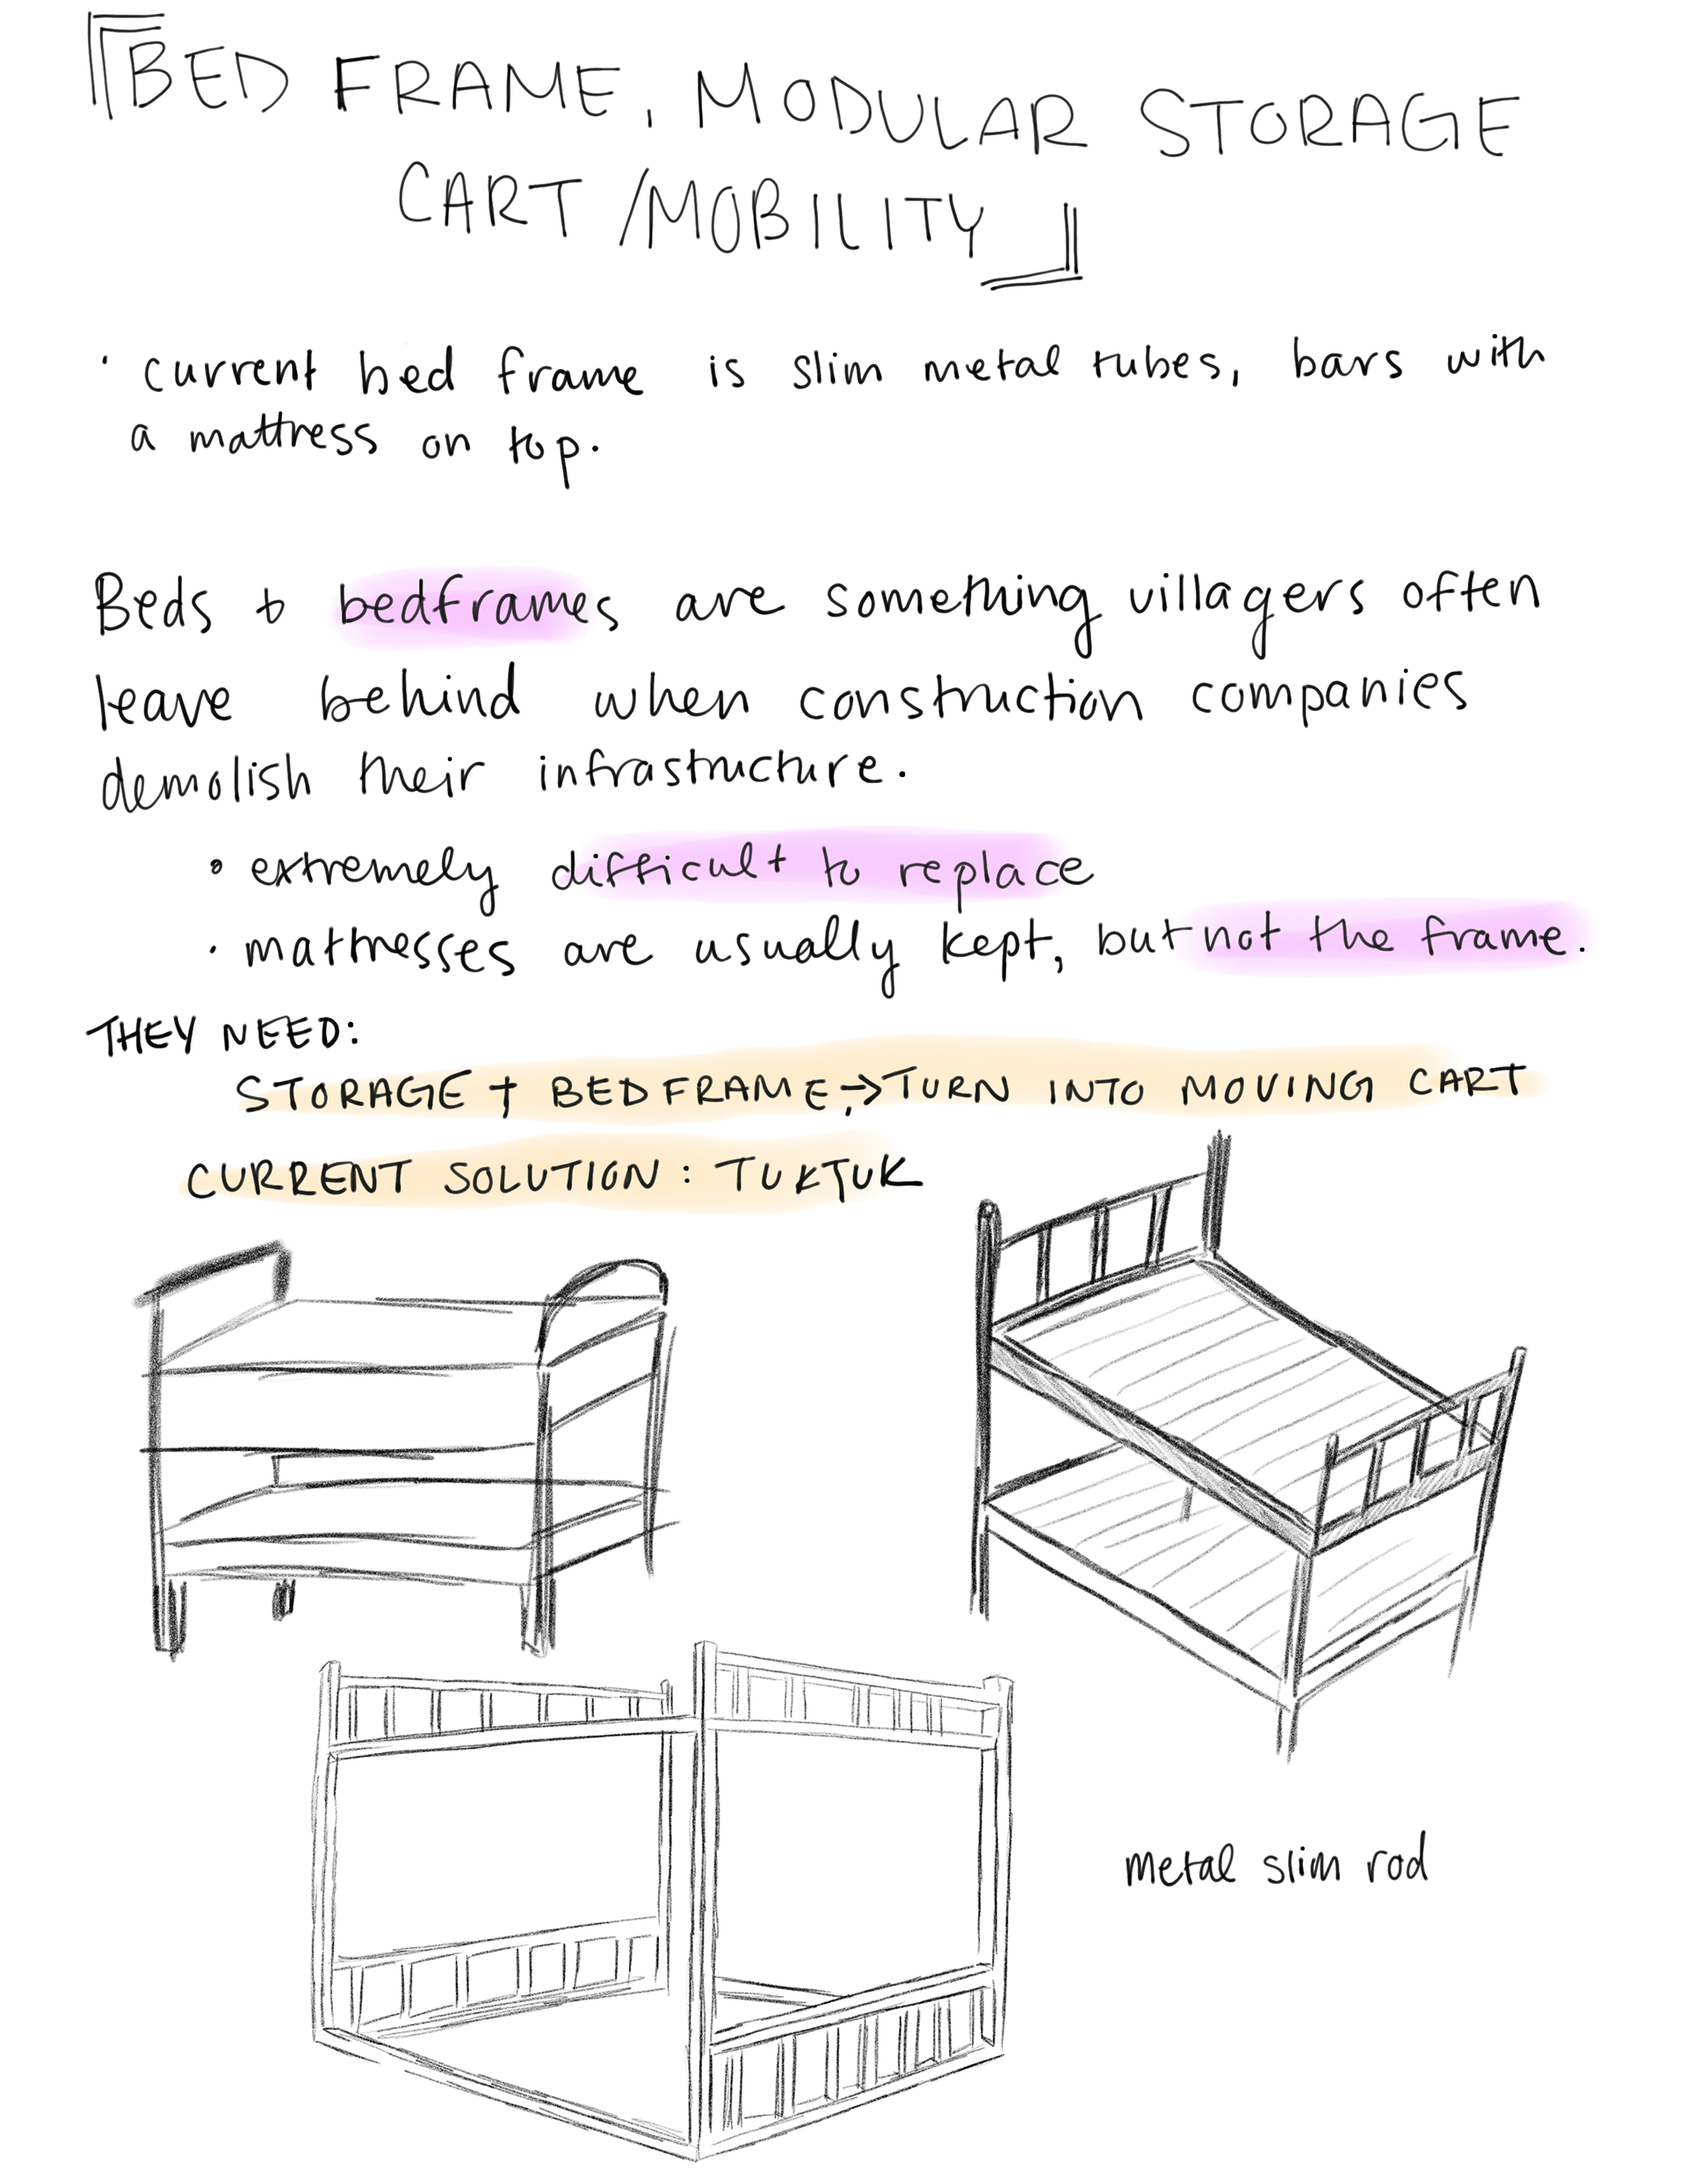 『BED FRAME, MODULAR STORAGE
CART /MOBILITY』
· current bed frame is slim metal tubes, bars with
a mattress on top.
Beds + bedframes are something villagers often
leave behind when construction companies
demolish their infrastructure.
• extremely difficult to replace
· mattresses are usually kept, but not the frame.
THEY NEED:
STORAGE + BED FRAME, → TURN INTO MOVING CART
CURRENT SOLUTION : TUKTUK
metal slim rod